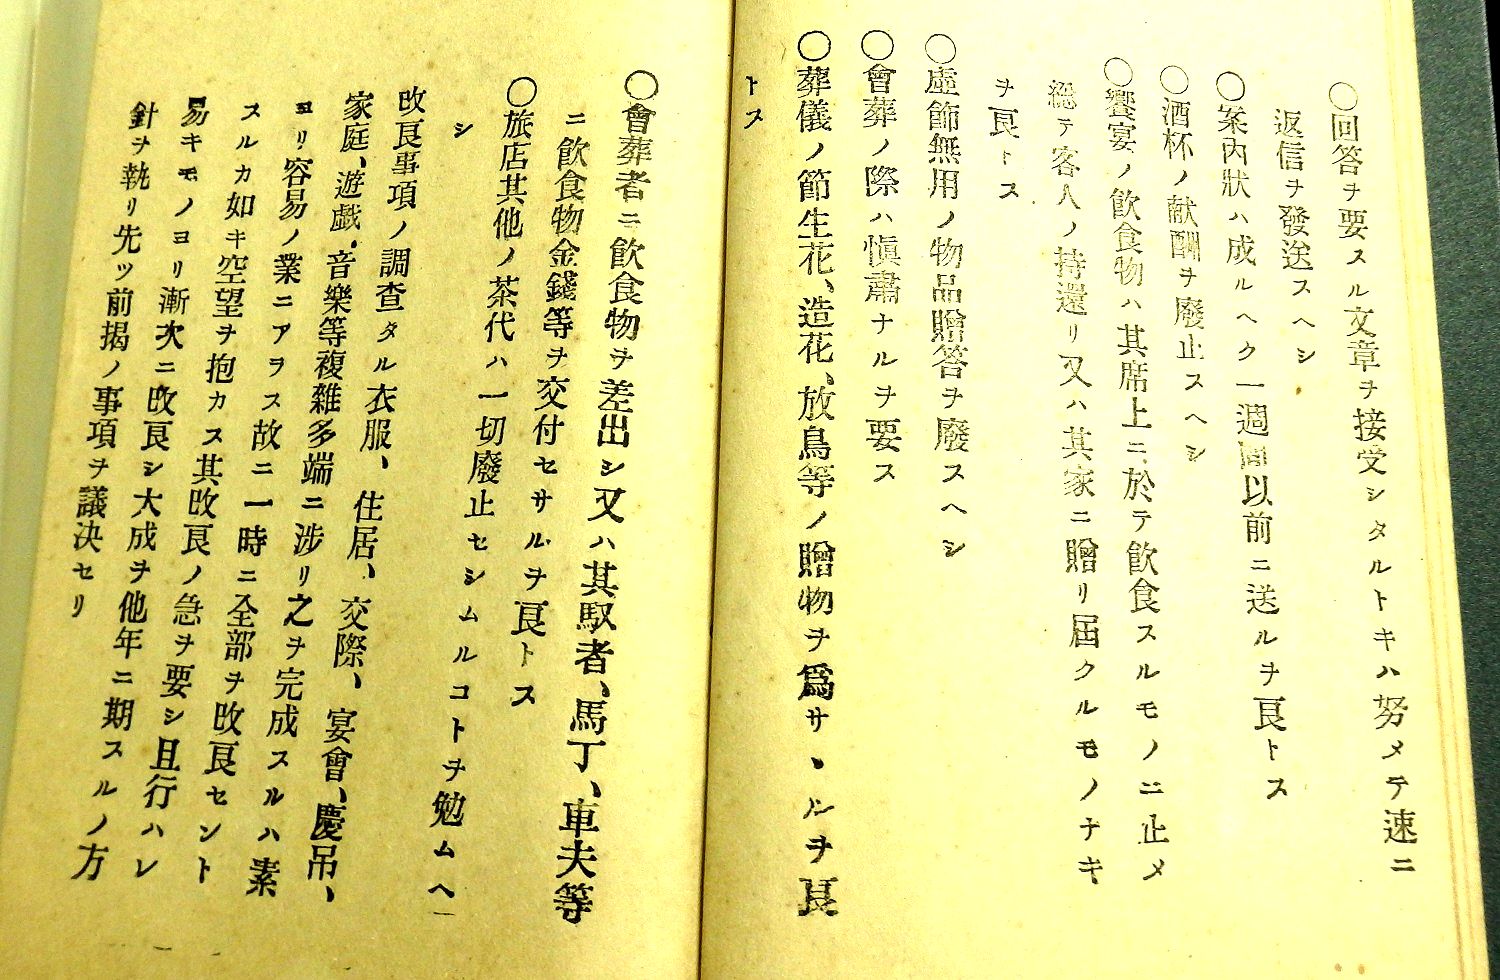 〇回答ヲ要スル文章ヲ接受シタルトキハ努メテ速ニ
返信ヲ發送スヘシ
〇案内狀ハ成ルヘク一週間以前ニ送ルヲ良トス
〇酒杯ノ献酬ヲ廢止スヘシ
〇饗宴ノ飮食物ハ其席上ニ於テ飮食スルモノニ止メ
總テ客人ノ持還リ又ハ其家ニ贈リ届クルモノナキ
ヲ良トス
〇虛節無用ノ物品贈答ヲ廢スヘシ
〇會葬ノ際ハ愼肅ナルヲ要ス
〇葬儀ノ節生花、造花、放鳥等ノ贈物ヲ爲サヽルヲ良
トス
〇會葬者ニ飮食物ヲ差出シ又ハ其馭者、馬丁、車夫等
ニ飮食物金錢等ヲ交付セサルヲ良トス
〇旅店其他ノ茶代ハ一切廢止セシムルコトヲ勉ムヘ
シ
改良事項ノ調查タル衣服、住居、交際、宴會、慶吊、
家庭、遊戲、音樂等複雜多端ニ涉リ之ヲ完成スルハ素
ヨリ容易ノ業ニアヲス故ニ一時ニ全部ヲ改良セント
スルカ如キ空望ヲ抱カス其改良ノ急ヲ要シ且行ハレ
易キモノヨリ漸次ニ改良シ大成ヲ他年ニ期スルノ方
針ヲ執リ先ツ前揭ノ事項ヲ議決セリ